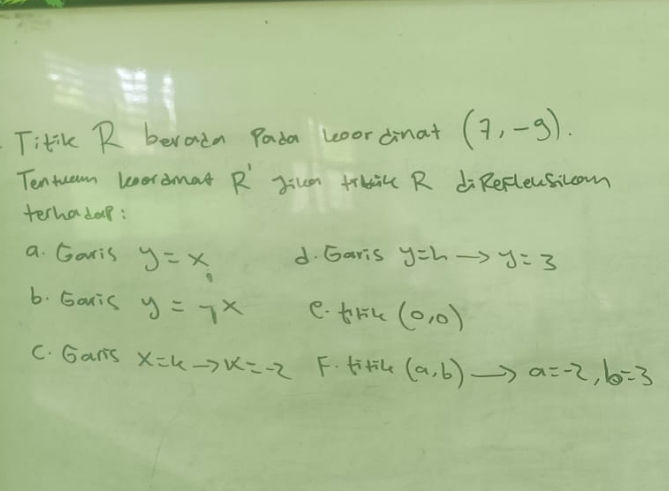 Titik R berada Pada koordinat (7,-9).
Tentukan koordinat R' jika titik R direfleksikan
terhadap:
a. Garis y=x
d. Garis y=h → y=3
b. Garis y=-x
e. titik (0,0)
c. Garis x=k → k=-2
F. titik (a,b) → a=-2, b=3